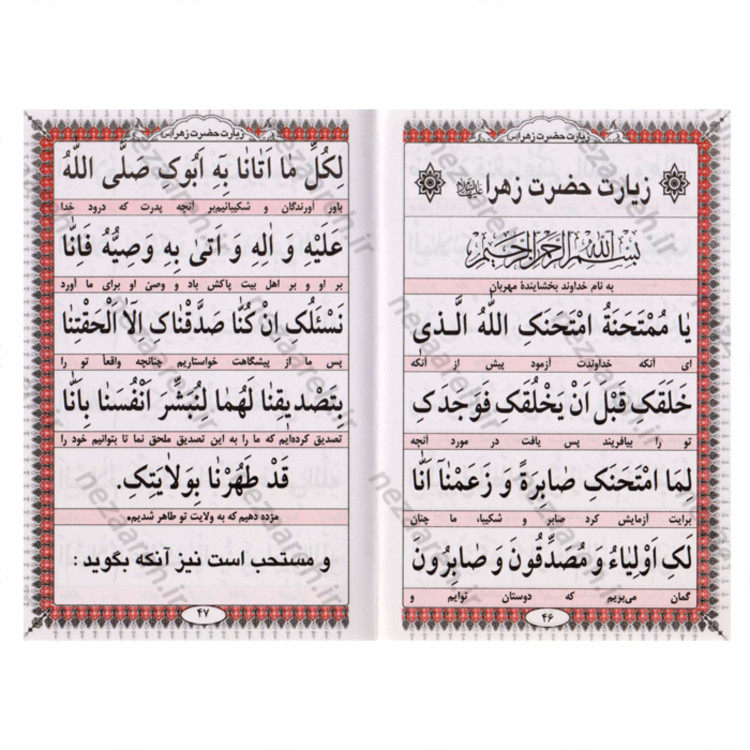 زیارت حضرت زهرا(س)
زیارت حضرت زهرا علیهاالسلام
بِسْمِ اللّٰهِ الرَّحْمٰنِ الرَّحِیمِ
به نام خداوند بخشایندهٔ مهربان
یٰا مُمْتَحَنَةُ امْتَحَنَکِ اللّٰهُ الَّـذی
ای آنکه خداوندت آزمود پیش از آنکه
خَلَقَکِ قَبْلَ اَنْ یَخْلُقَکِ فَوَجَدَکِ
تو را بیافریند پس یافت در مورد آنچه
لِمَا امْتَحَنَکِ صٰابِرَةً وَ زَعَمْنٰآ اَنّٰا
برایت آزمایش کرد صابر و شکیبا، ما چنان
لَکِ اَوْلِیٰاءُ وَ مُصَدِّقُونَ وَ صٰابِرُونَ
گمان می‌بریم که دوستان توایم و
۴۶
زیارت حضرت زهرا(س)
لِکُلِّ مٰا اَتٰانٰا بِهِ اَبُوکِ صَلَّی اللّٰهُ
باور آورندگان و شکیبائیم‌بر آنچه پدرت که درود خدا
عَلَیْهِ وَ اٰلِهِ وَ اَتیٰ بِهِ وَصِیُّهُ فَاِنّٰا
بر او و بر اهل بیت پاکش باد و وصیّ او برای ما آورد
نَسْئَلُکِ اِنْ کُنّٰا صَدَّقْنٰاکِ اِلاّٰ اَلْحَقْتِنٰا
پس ما از پیشگاهت خواستاریم چنانچه واقعاً تو را
بِتَصْدیقِنٰا لَهُمٰا لِنُبَشِّرَ اَنْفُسَنٰا بِاَنّٰا
تصدیق کرده‌ایم که ما را به این تصدیق ملحق نما تا بتوانیم خود را
قَدْ طَهُرْنٰا بِوِلاٰیَتِکِ.
مژده دهیم که به ولایت تو طاهر شدیم*
و مستحب است نیز آنکه بگوید :
۴۷
nezaareh.ir